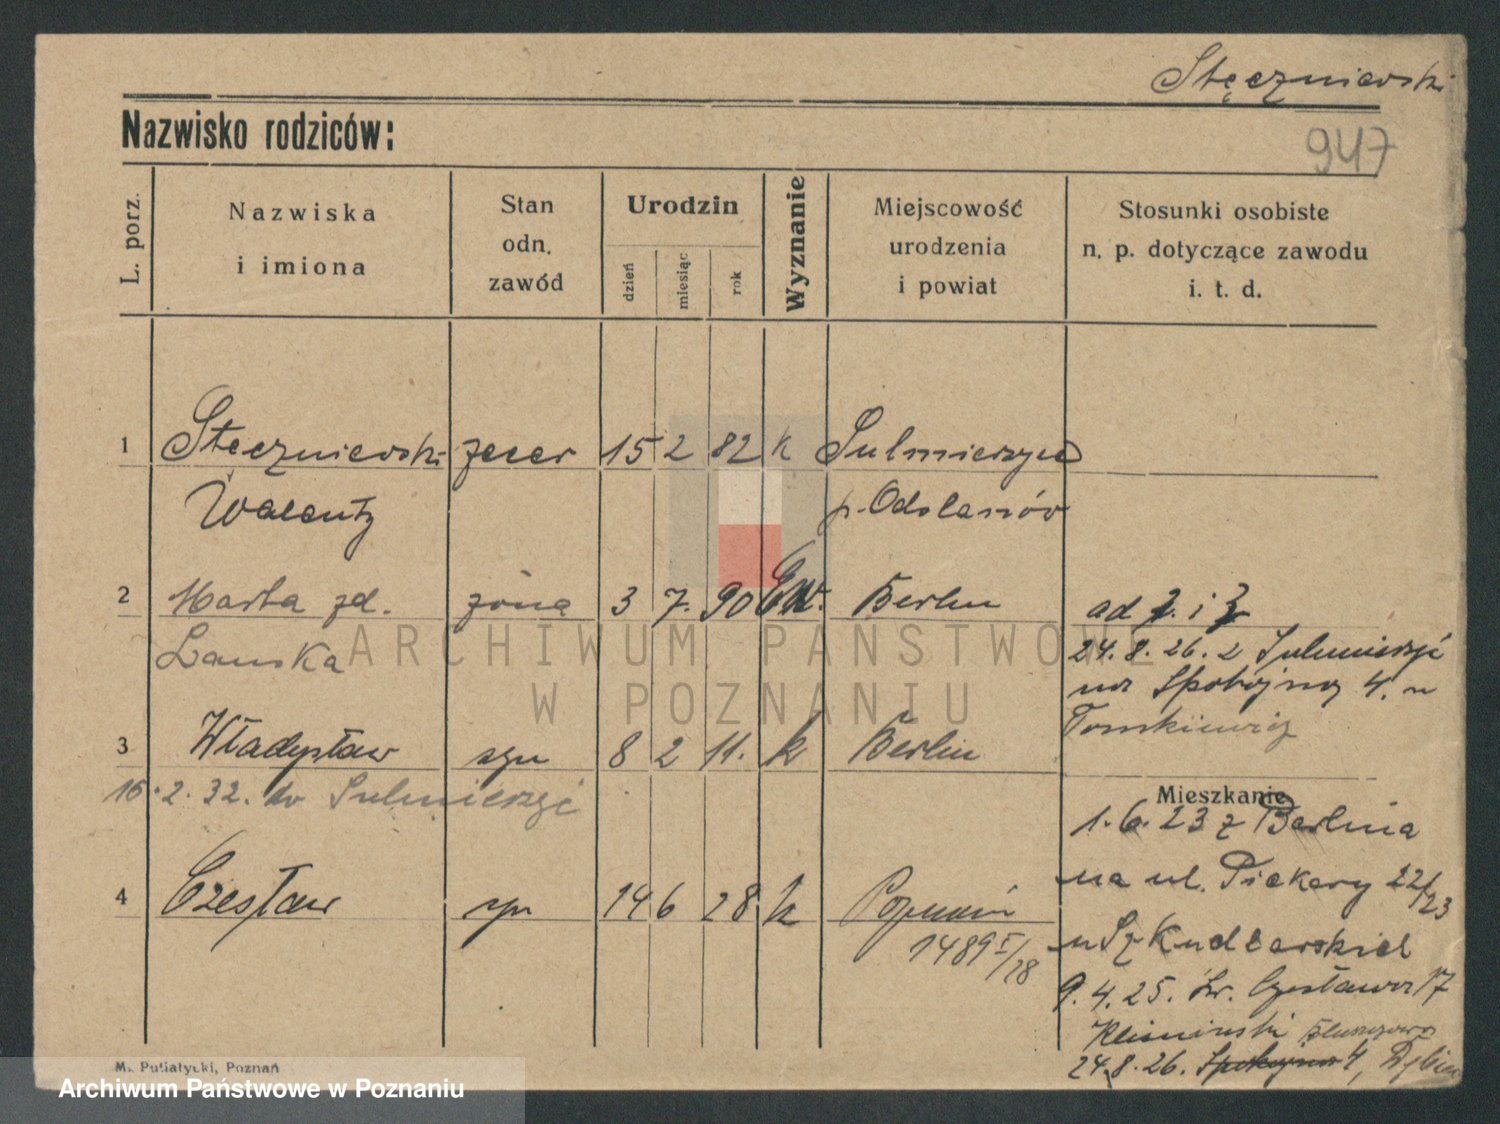 Stęczniewski
947
Nazwisko rodziców:
L. porz.
Nazwiska
i imiona
Stan
odn.
zawód
Urodzin
dzień
miesiąc
rok
Wyznanie
Miejscowość
urodzenia
i powiat
Stosunki osobiste
n. p. dotyczące zawodu
i. t. d.
1 Stęczniewski zecer 15 2 82 k Sulmierzyce
Walenty p. Odolanów
2 Marta zd. żona 3 7. 90 Ew. Berlin
Lanska
ad 2. i 3
24. 8. 26. z Sulmierzyc
na Spokojną 4. u
Tomkiewicz
3 Władysław syn 8 2 11. k Berlin
16.2.32. do Sulmierzyc
Mieszkanie
1.6.23 z Berlina
na ul. Piekary 22/23
u Szkudlarskich
4 Czesław syn 14 6 28 k Poznań
1489 I/28
9.4.25. Św. Czesława 17
24.8.26. Spokojna 4,
M. Putiatycki, Poznań
ARCHIWUM PAŃSTWOWE
W POZNANIU
Archiwum Państwowe w Poznaniu